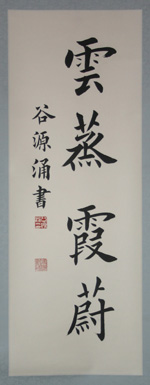 雲蒸霞蔚
谷源涌書